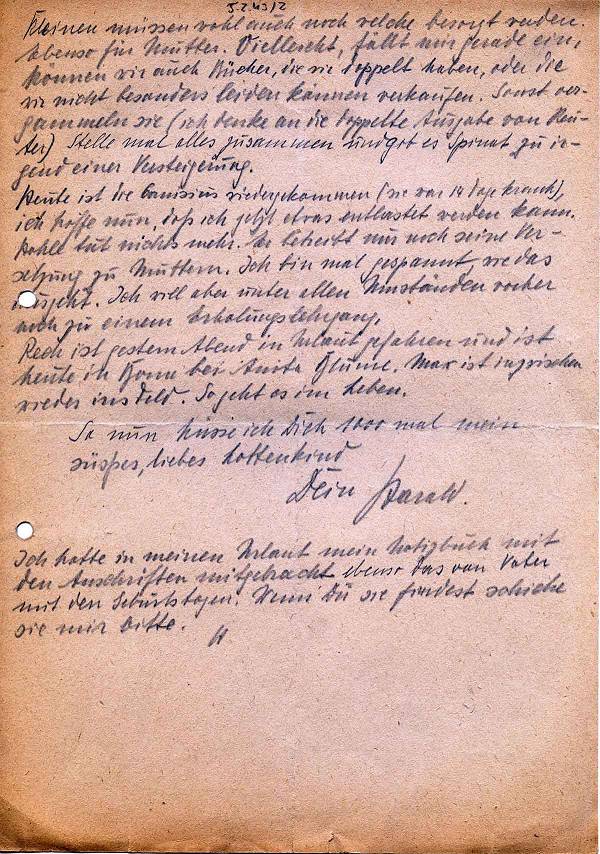 5.2.43/2
Kleinen müssen wohl auch noch welche besorgt werden.
Ebenso für Mutter. Vielleicht, fällt mir gerade ein,
können wir auch Bücher, die wir doppelt haben, oder die
wir nicht besonders leiden können verkaufen. Sonst ver-
gammeln sie (ich denke an die doppelte Ausgabe von Reu-
ter) Stelle mal alles zusammen und gib es Spinat zu ir-
gend einer Versteigerung.
Heute ist die Canisius wiedergekommen (sie war 14 Tage krank),
ich hoffe nun, daß ich jetzt etwas entlastet werden kann.
tut nichts mehr. Er betreibt nur noch seine Ver-
setzung zu Muttern. Ich bin mal gespannt wie das
ausgeht. Ich will aber unter allen Umständen vorher
noch zu einem Erholungslehrgang.
Rech ist gestern Abend in Urlaub gefahren und ist
heute in Bonn bei Anita Blume. Max ist inzwischen
wieder ins Feld. So geht es im Leben.
So nun küsse ich Dich 1000 mal mein
süsses, liebes Lottenkind
Dein Harald.
Ich hatte in meinen Urlaub mein Notizbuch mit
den Anschriften mitgebracht ebenso das von Vater
mit den Geburtstagen. Wenn Du sie findest schicke
sie mir bitte.
H